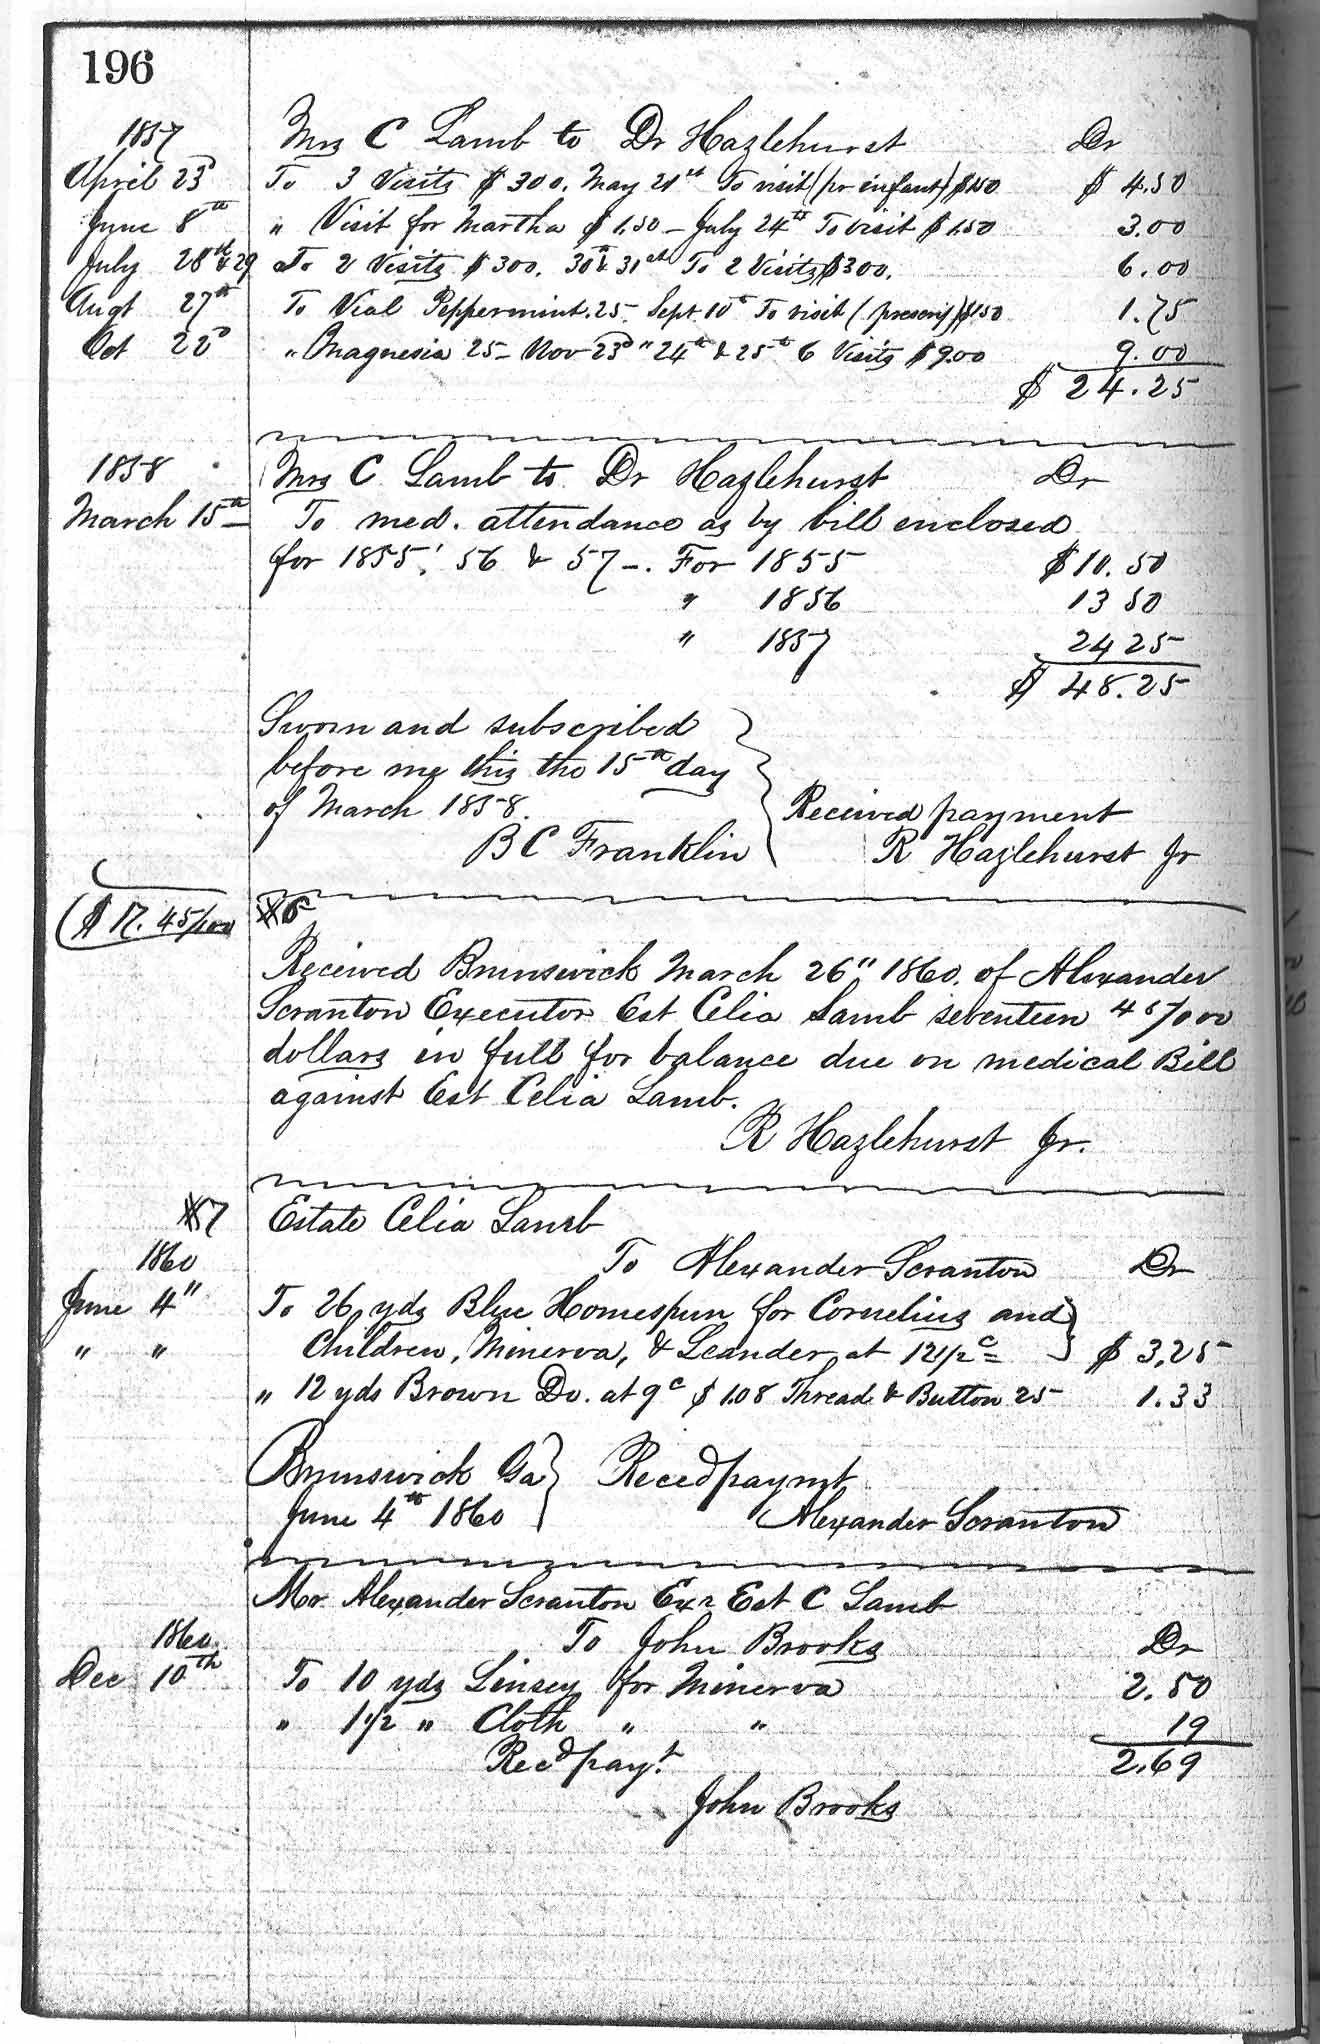 196
1857 Mrs C Lamb to Dr Hazlehurst Dr
April 23d To 3 Visits $300. May 21st To visit (pr infant) $1.50 $ 4.50
June 8th " Visit for Martha $1.50 – July 24th To visit $1.50 3.00
July 28th & 29 To 2 Visits $300. 30th & 31st To 2 Visits $300. 6.00
Augt 27th To Vial Peppermint .25 – Sept 10th To visit (prescrip) $150 1.75
Oct 22d " Magnesia 25 – Nov 23d " 24th & 25th 6 Visits $9.00 9.00
$ 24.25
1858 Mrs C Lamb to Dr Hazlehurst Dr
March 15th – To med. attendance as by bill enclosed
for 1855, 56 & 57 –. For 1855 $10.50
" 1856 13 50
" 1857 24 25
$ 48.25
Sworn and subscribed
before me this the 15th day
of March 1858. Received payment
B C Franklin R Hazlehurst Jr
($ 17. 45/100 #6
Received Brunswick March 26" 1860. of Alexander
Scranton Executor Est Celia Lamb seventeen 45/100
dollars in full for balance due on medical Bill
against Est Celia Lamb.
R Hazlehurst Jr.
#7 Estate Celia Lamb
1860 To Alexander Scranton Dr
June 4" To 26 yds Blue Homespun for Cornelius and
" " Children, Minerva, & Leander at 12 1/2c = $ 3,25
" 12 yds Brown Do. at 9c $1.08 Thread & Button 25 1.33
Brunswick Ga Recedpaymt
June 4th 1860 Alexander Scranton
Mr. Alexander Scranton Exr Est C Lamb
1860. To John Brooks Dr
Dec 10th To 10 yds Linsey for Minerva 2.50
" 1 1/2 " Cloth " " 19
Recd payt. 2.69
John Brooks